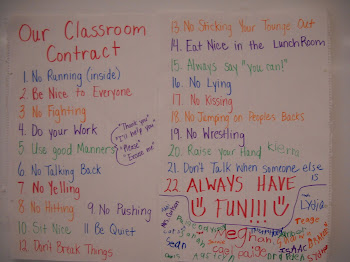 Our Classroom
Contract
1. No Running (inside)
2. Be Nice to Everyone
3. No Fighting
4. Do your Work
5. Use good Manners
"Thank you"
"I'll help you"
"Please"
"Excuse me"
6. No Talking Back
7. No Yelling
8. No Hitting 9. No Pushing
10. Sit Nice 11. Be Quiet
12. Don't Break Things
13. No Sticking Your Tounge Out
14. Eat Nice in the LunchRoom
15. Always say "you can!"
16. No Lying
17. No Kissing
18. No Jumping on Peoples Backs
19. No Wrestling
20. Raise your Hand Kierra
21. Don't Talk when someone else
is
22. ALWAYS HAVE
FUN!!!
Lydia
Meghan
Sean
Paige
ISAAC